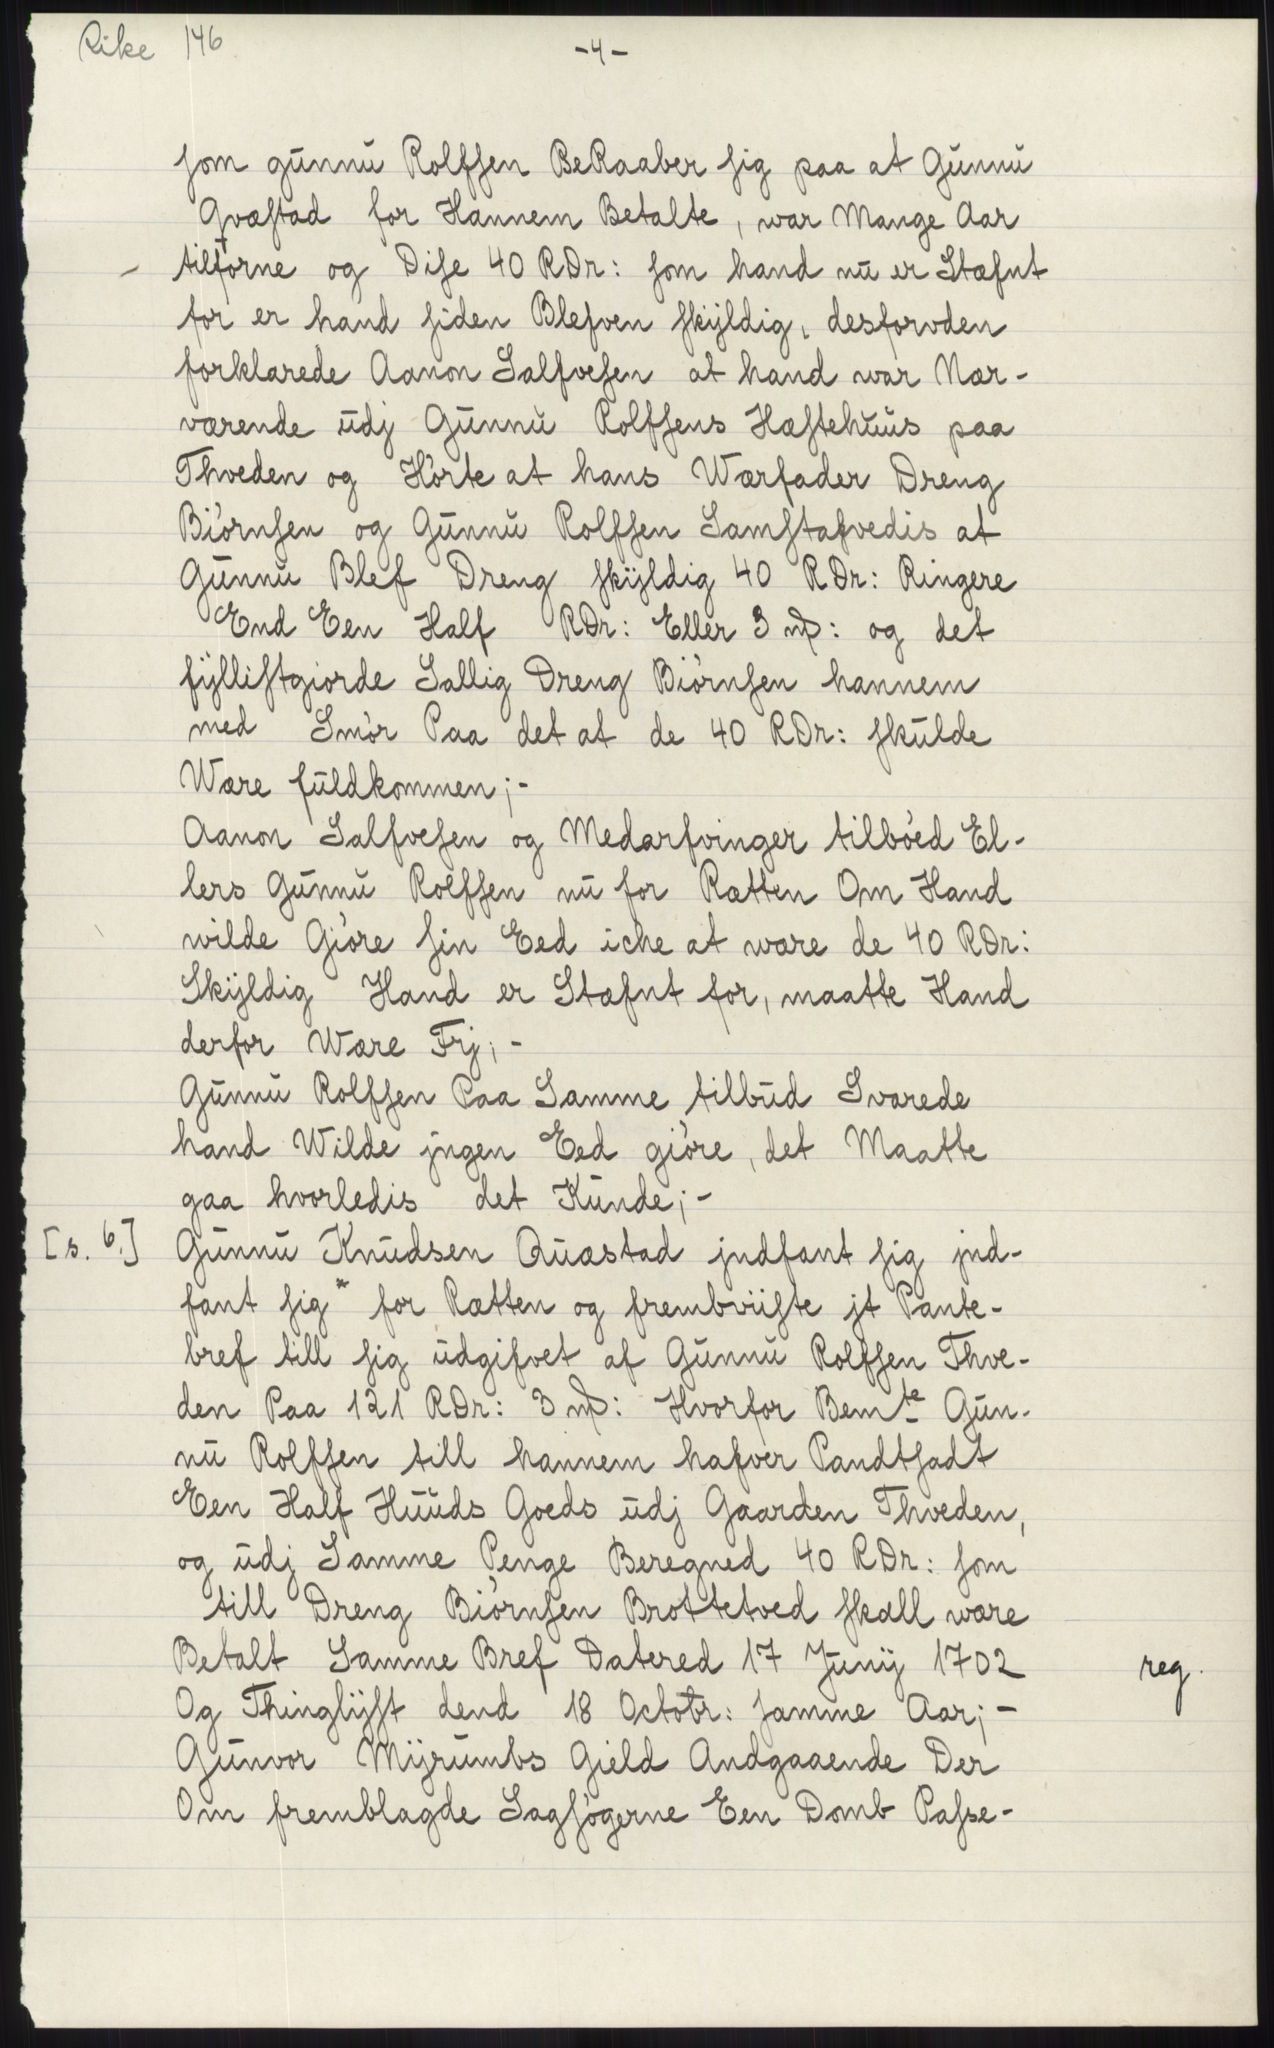 Rike 146
-4-
som gunnu Rolfsen BeRaaber sig paa at Gunnu
Qvæstad for Hannem Betalte, war Mange Aar
tilforne og Dise 40 RDr: som hand nu er Stæfnt
for er hand siden Blefven skyldig, desforvden
forklarede Aanon Salfvesen at hand war Nær-
værende udj Gunnu Rolfsens Hæstehuus paa
Thveden og Hórte at hans Wærfader Dreng
Biórnsen og Gunnu Rolfsen Samstafvedis at
Gunnu Blef Dreng skyldig 40 RDr: Ringere
End Een Half RDr: Eller 3 mþ: og det
fyllistgiorde Sallig Dreng Biórnsen hannem
med Smór Paa det at de 40 RDr: skulde
Wære fuldkommen;-
Aanon Salfvesen og Medarfvinger tilbóed El-
lers Gunnu Rolfsen nu for Rætten Om Hand
wilde Gióre sin Eed icke at wære de 40 RDr:
Skyldig Hand er Stæfnt for, maatte Hand
derfor Wære Frj;-
Gunnu Rolfsen Paa Samme tilbud Svarede
hand Wilde jngen Eed gióre, det Maatte
gaa hvorledis det Kunde;-
[s. 6.] Gunnu Knudsen Quæstad jndfant sig jnd-
fant sig* for Rætten og frembviiste jt Pante-
bref till sig udgifvet af Gunnu Rolfsen Thve-
den Paa 121 RDr: 3 mþ: Hvorfor Bemte Gun-
nu Rolfsen till hannem hafver Pandtsadt
Een Half Huuds Goeds udj Gaarden Thveden,
og udj Samme Penge Beregned 40 RDr: som
till Dreng Biórnsen Brottetved skall wære
Betalt Samme Bref Datered 17 Junij 1702 reg.
Og Thinglyst dend 18 Octobr: samme Aar;-
Gunvor Myrumbs Gield Andgaaende Der
Om fremblagde Sagsógerne Een Domb Passe-